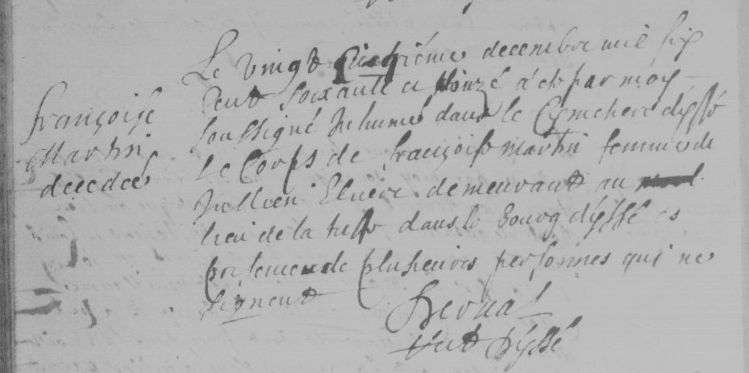 françoise
Martin
decedee
Le vingt décembre mil six
cent soixante et a eté par moy
soussigné Inhumé dans le Cymetiere dissé
Le Corps de françoise martin femme de
Jullien demeurant au
lieu de la dans le bourg dissé es
presence de plusieurs personnes qui ne
signent